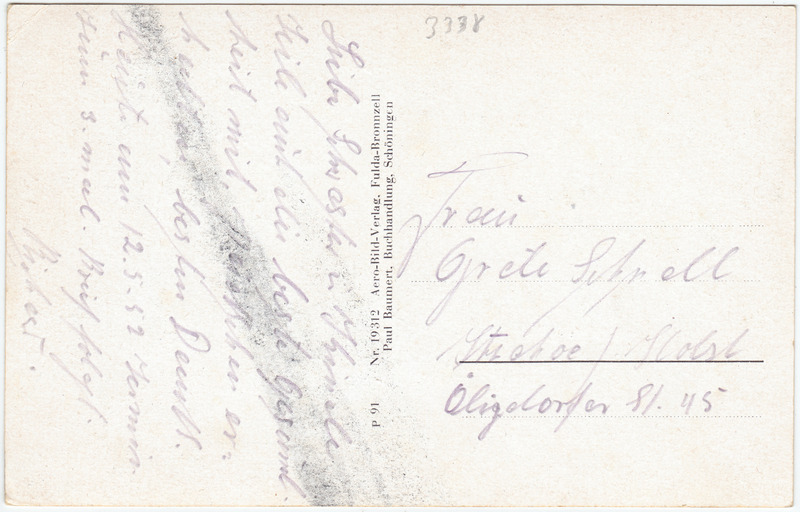 3338
Liebe Schwester u.
Teile euch die beste Gesund
heit mit.
besten Dank.
Heute am 12.5.52 Termin
zum 3. mal. Brief folgt.
P 91 Nr. 19312 Aero-Bild-Verlag, Fulda-Bronnzell
Paul Baumert, Buchhandlung, Schöningen
Frau
Grete Schnell
Itzehoe / Holst
Ölixdorfer St. 45